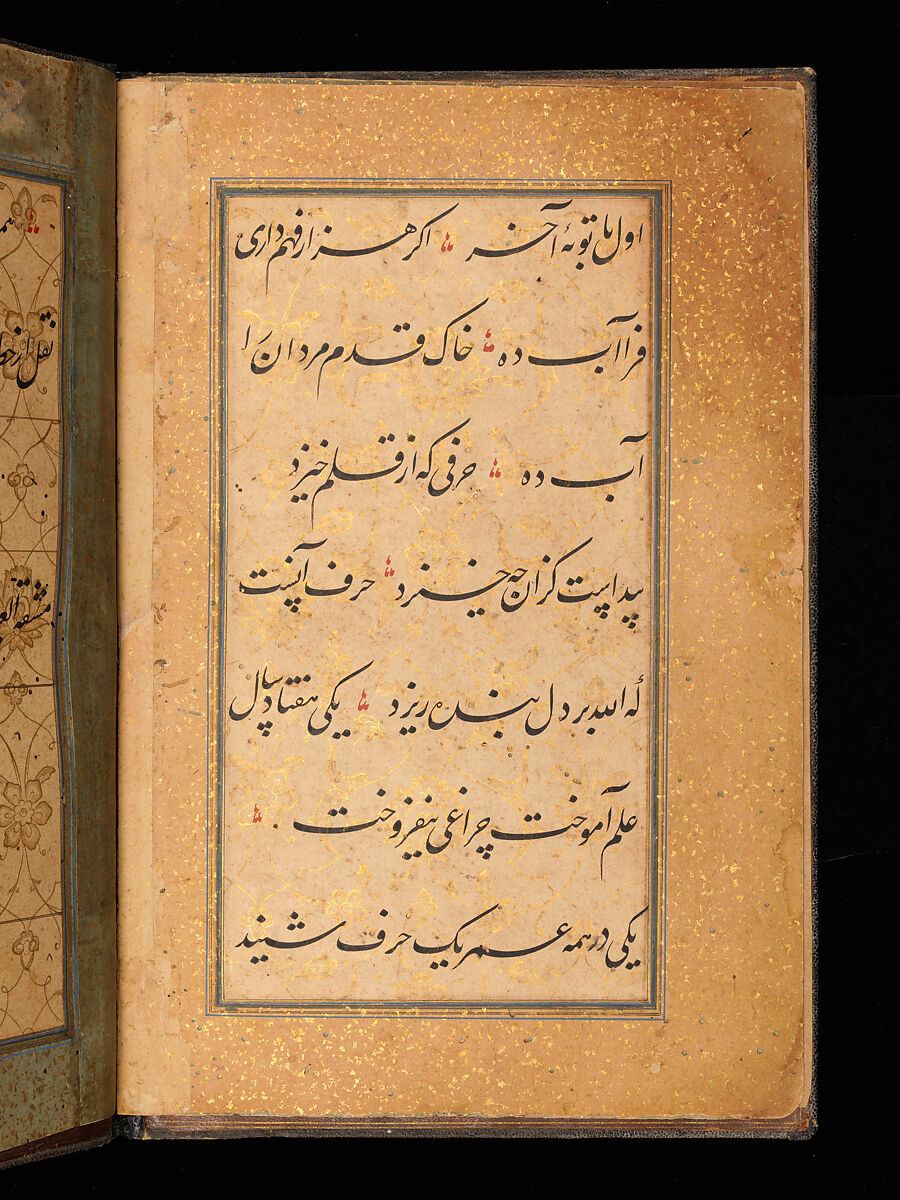 اول یا توبهٔ آخر اکر هزار فهم داری
فرا آب ده خاک قدم مردان را
آب ده حرفی که از قلم خیزد
پیداست کزان چه خیزد حرف آنست
که الله بر دل بنده ریزد یکی هفتاد سال
علم آموخت چراغی نیفروخت
یکی در همه عمر یک حرف شنید
نقل از خط
مشقه